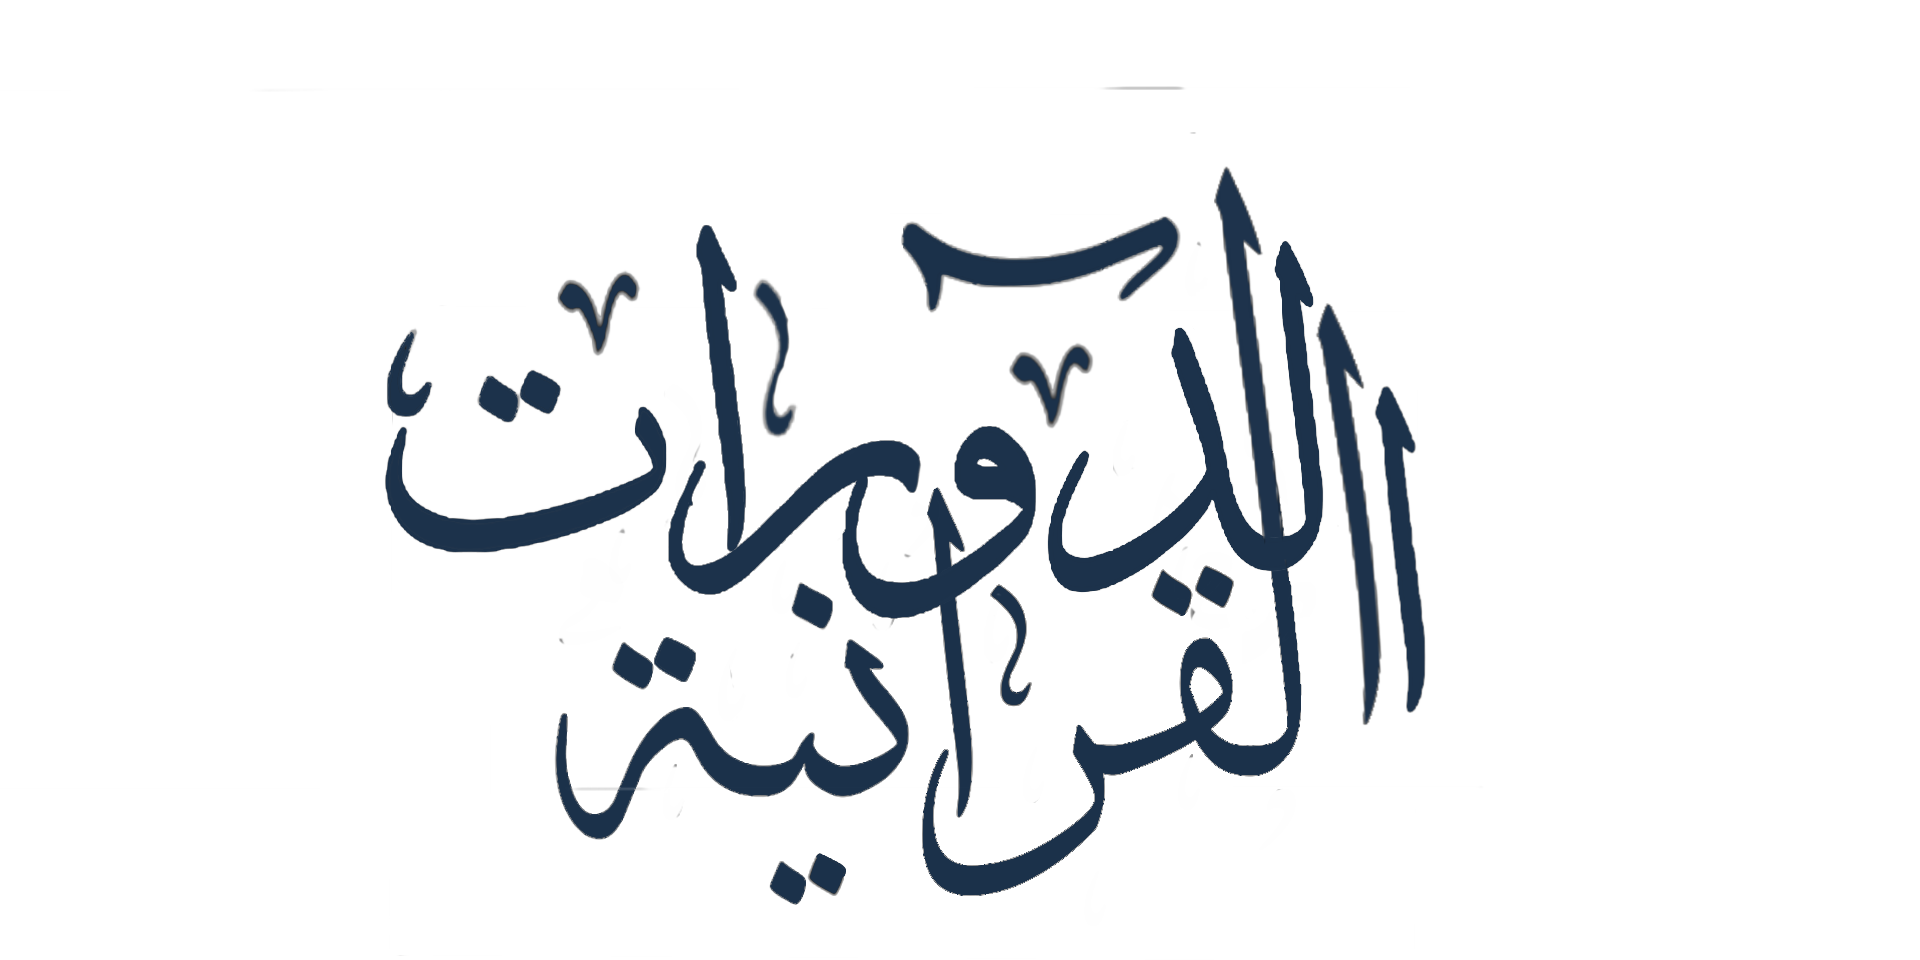 الدورات
القرانية